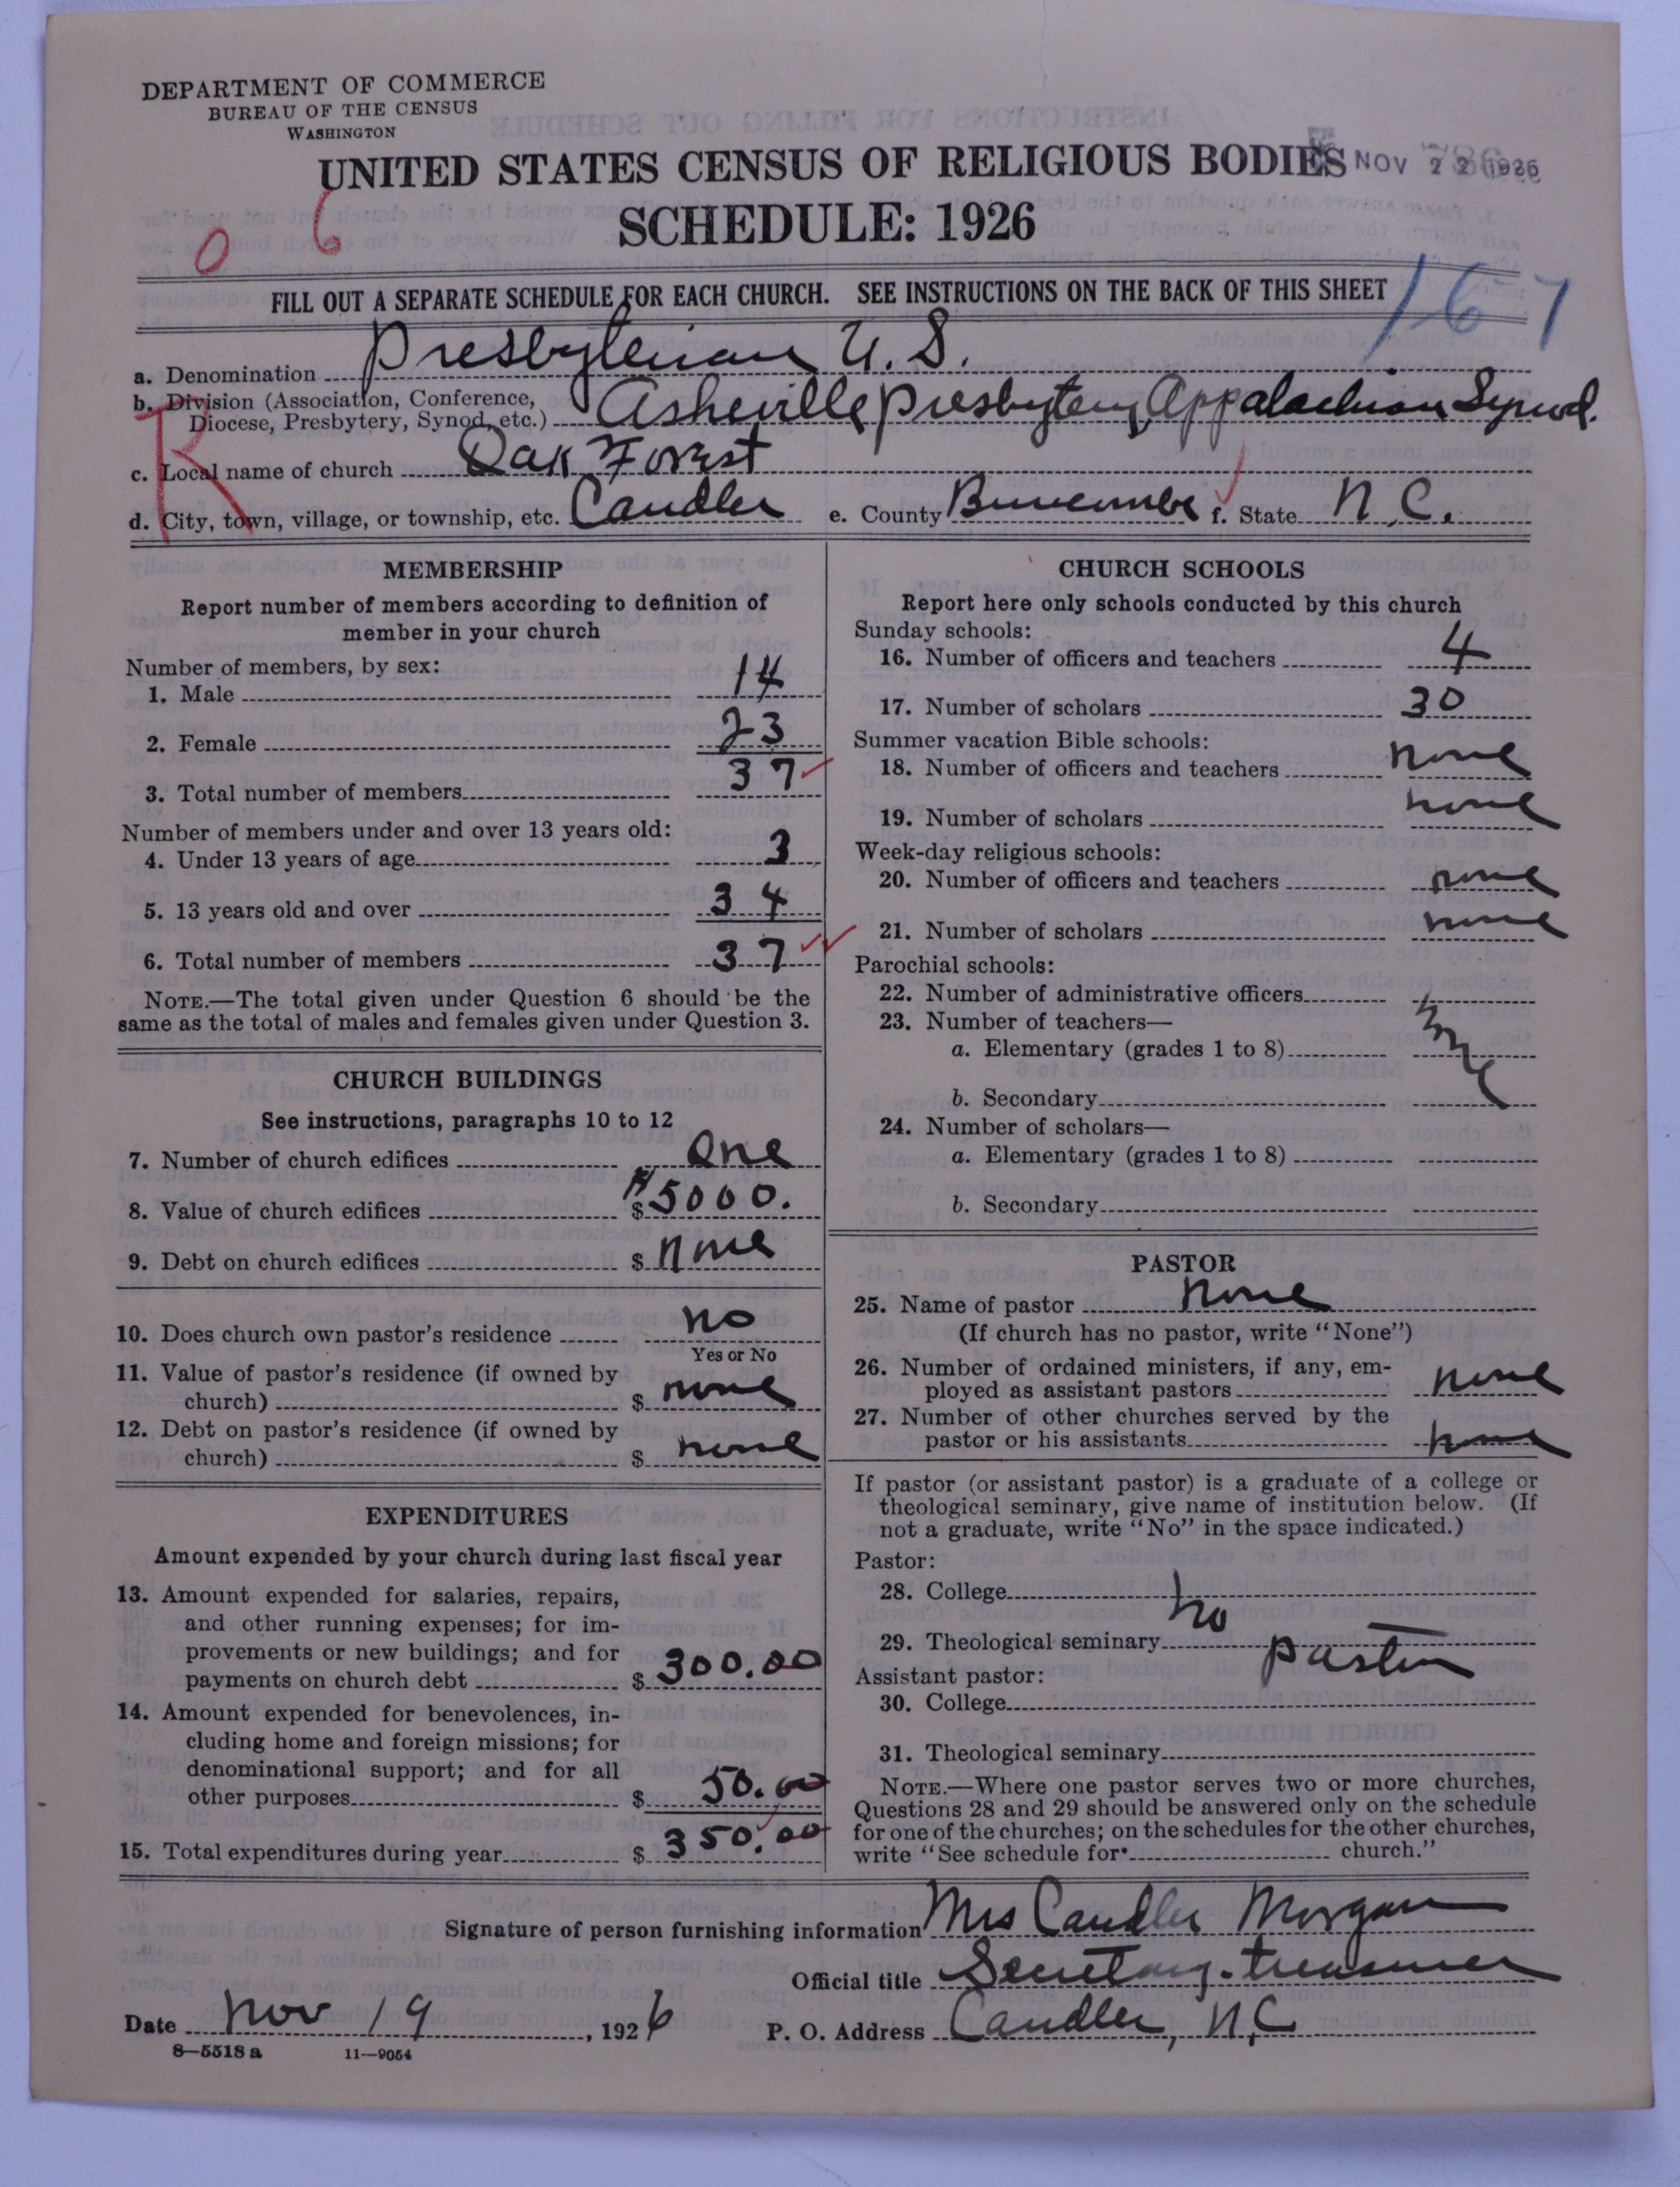 DEPARTMENT OF COMMERCE
BUREAU OF THE CENSUS
WASHINGTON
UNITED STATES CENSUS OF RELIGIOUS BODIES NOV 22 1926
SCHEDULE: 1926
0 6
FILL OUT A SEPARATE SCHEDULE FOR EACH CHURCH. SEE INSTRUCTIONS ON THE BACK OF THIS SHEET
167
a. Denomination Presbyterian U. S.
b. Division (Association, Conference, Diocese, Presbytery, Synod, etc.) Asheville Presbytery, Appalachian Synod.
R
c. Local name of church Oak Forest
d. City, town, village, or township, etc. Candler e. County Buncombe f. State N.C.
MEMBERSHIP
Report number of members according to definition of
member in your church
Number of members, by sex:
1. Male 14
2. Female 23
3. Total number of members 37
Number of members under and over 13 years old:
4. Under 13 years of age 3
5. 13 years old and over 34
6. Total number of members 37
NOTE.—The total given under Question 6 should be the
same as the total of males and females given under Question 3.
CHURCH BUILDINGS
See instructions, paragraphs 10 to 12
7. Number of church edifices One
8. Value of church edifices $5000.
9. Debt on church edifices $ none
10. Does church own pastor's residence no
Yes or No
11. Value of pastor's residence (if owned by
church) $ none
12. Debt on pastor's residence (if owned by
church) $ none
EXPENDITURES
Amount expended by your church during last fiscal year
13. Amount expended for salaries, repairs,
and other running expenses; for im-
provements or new buildings; and for
payments on church debt $ 300.00
14. Amount expended for benevolences, in-
cluding home and foreign missions; for
denominational support; and for all
other purposes $ 50.00
15. Total expenditures during year $ 350.00
CHURCH SCHOOLS
Report here only schools conducted by this church
Sunday schools:
16. Number of officers and teachers 4
17. Number of scholars 30
Summer vacation Bible schools:
18. Number of officers and teachers none
19. Number of scholars none
Week-day religious schools:
20. Number of officers and teachers none
21. Number of scholars none
Parochial schools:
22. Number of administrative officers
23. Number of teachers—
none
a. Elementary (grades 1 to 8)
b. Secondary
24. Number of scholars—
a. Elementary (grades 1 to 8)
b. Secondary
PASTOR
25. Name of pastor None
(If church has no pastor, write "None")
26. Number of ordained ministers, if any, em-
ployed as assistant pastors none
27. Number of other churches served by the
pastor or his assistants none
If pastor (or assistant pastor) is a graduate of a college or
theological seminary, give name of institution below. (If
not a graduate, write "No" in the space indicated.)
Pastor:
28. College
no
29. Theological seminary
pastor
Assistant pastor:
30. College
31. Theological seminary
NOTE.—Where one pastor serves two or more churches,
Questions 28 and 29 should be answered only on the schedule
for one of the churches; on the schedules for the other churches,
write "See schedule for church."
Signature of person furnishing information Mrs Candler Morgan
Official title Secretary-treasurer
Date Nov 19, 1926 P. O. Address Candler, N.C
8—5518 a 11—9054